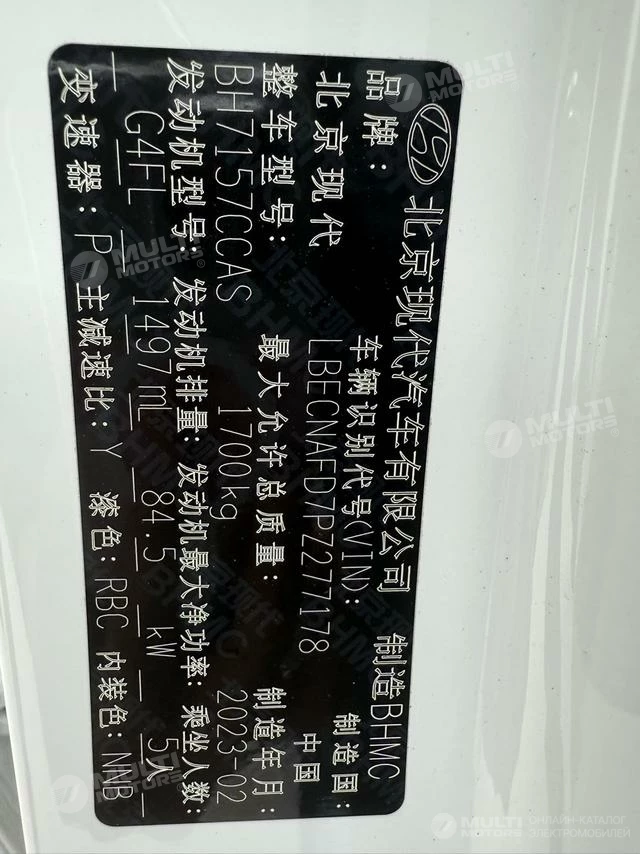 北京现代汽车有限公司 制造BHMC
品牌: 车辆识别代号(VIN): 制造国:
北京现代 LBECNAFD7PZ277178 中国
整车型号: 最大允许总质量: 制造年月:
BH7157CCAS 1700kg 2023-02
发动机型号: 发动机排量: 发动机最大净功率: 乘坐人数:
G4FL 1497mL 84.5 kW 5人
变速器: P 主减速比: Y 漆色: RBC 内装色: NNB
MULTI MOTORS
MULTI MOTORS
MULTI MOTORS
MULTI MOTORS
MULTI MOTORS
MULTI MOTORS ОНЛАЙН-КАТАЛОГ ЭЛЕКТРОМОБИЛЕЙ